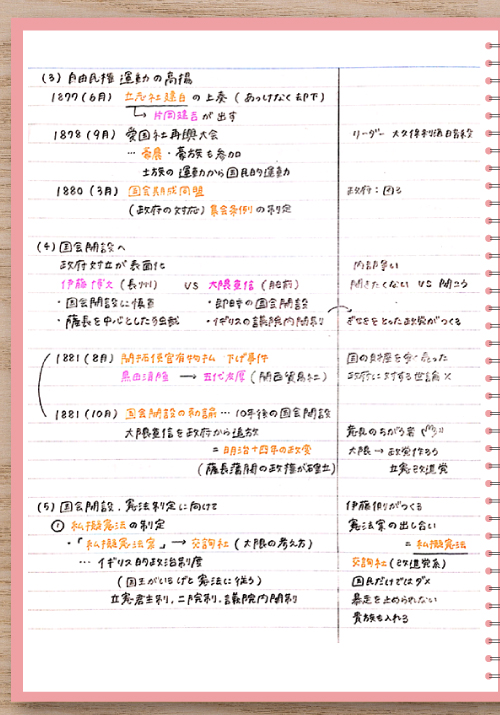 (3) 自由民権運動の高揚
1877(6月) 立志社建白の上奏(あっけなく却下)
片岡建吉が出す
1878(9月) 愛国社再興大会
リーダー 大久保利通暗殺
… 豪農・豪族も参加
士族の運動から国民的運動
1880(3月) 国会期成同盟
政府:困る
(政府の対応) 集会条例の制定
(4) 国会開設へ
政府対立が表面化
内部争い
伊藤博文(長州) VS 大隈重信(肥前)
開きたくない VS 開こう
・国会開設に慎重 ・即時の国会開設
・薩長を中心とした ・イギリスの議院内閣制
をとった政党がつくる
1881(8月) 開拓使官有物払い下げ事件
国の財産を安く売った
黒田清隆 → 五代友厚(関西貿易社)
政府に対する世論×
1881(10月) 国会開設の勅諭 … 10年後の国会開設
大隈重信を政府から追放
意見のちがう者
= 明治十四年の政変
大隈→政党作ろう
(薩長藩閥の政権が確立)
立憲改進党
(5) 国会開設、憲法制定に向けて
伊藤側がつくる
① 私擬憲法の制定
憲法案の出し合い
・「私擬憲法案」→ 交詢社(大隈の考え方)
= 私擬憲法
… イギリス的政治制度
交詢社(改進党系)
(国王がいるけど憲法に従う)
国民だけではダメ
立憲君主制、二院制、議院内閣制
暴走を止められない
貴族も入れる